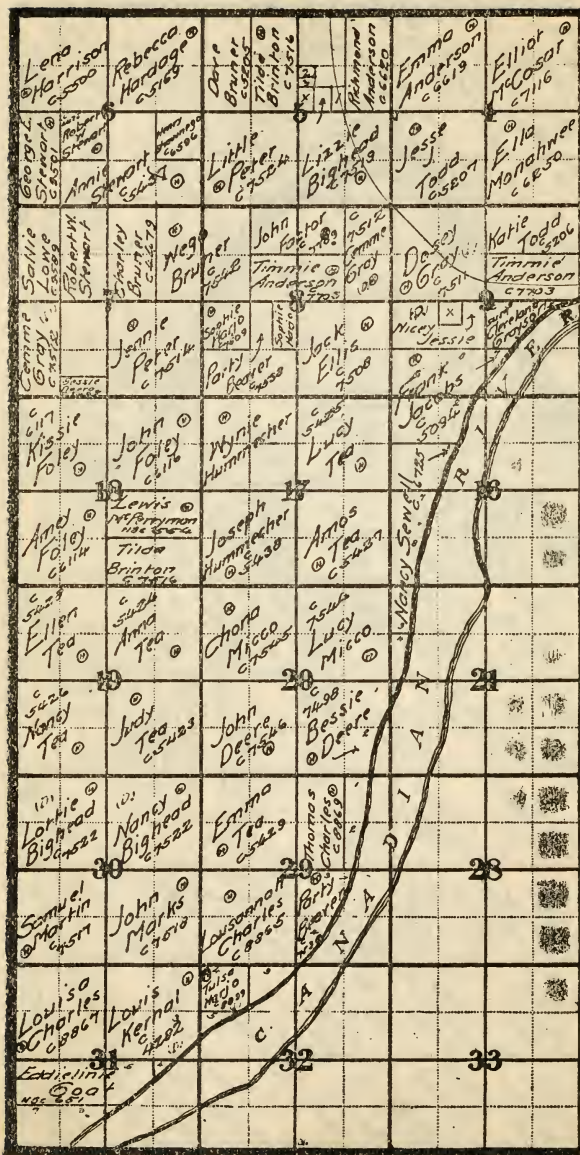 Lena
Harrison
C5500
Rebecca
Hardage
C5169
Dave
Bruner
C5205
Tilda
Brinton
C7516
Richmond
Anderson
C6620
Emma
Anderson
C6619
Elliot
McCosar
C7116
6
5
4
George L.
Stewart
Robert
Stewart
Annie
Stewart
Little
Peter
C7524
Lizzie
Bighead
Jesse
Todd
C5207
Ella
Monahwee
C6250
Sallie
Lowe
Robert W.
Stewart
Charley
Bruner
Wege
Bruner
John
Factor
Timmie
Anderson
C7703
C7512
Cemme
Gray
Daisy
Gray
Katie
Todd
C5206
Timmie
Anderson
C7703
8
9
Cemme
Gray
Jennie
Peter
C7514
Party
Beaver
Jack
Ellis
C7508
Nicey
Jessie
Jacobs
C5094
C6117
Kissie
Foley
John
Foley
C6116
Wynie
Hummecher
C5425
Lucy
Tea
Nancy Sewell C6725
18
17
16
Amey
Foley
C6114
Lewis
McPerryman
Tilda
Brinton
C7516
Joseph
Hummecher
C5438
Amos
Tea
C5437
C5425
Ellen
Tea
C5424
Anna
Tea
Chona
Micco
C7545
Lucy
Micco
19
20
21
C5426
Nancy
Tea
Judy
Tea
C5423
John
Deere
C7546
C7498
Bessie
Deere
Lottie
Bighead
C7522
Nancy
Bighead
C7522
Emma
Tea
C5429
Thomas
Charles
C8869
30
29
28
Samuel
Martin
C7517
John
Marks
C7510
Lousannah
Charles
C8865
Party
Beaver
Louisa
Charles
C8867
Louis
Kernal
C4282
Tulsa
31
32
33
Eddieline
Goat
CANADIAN RIVER